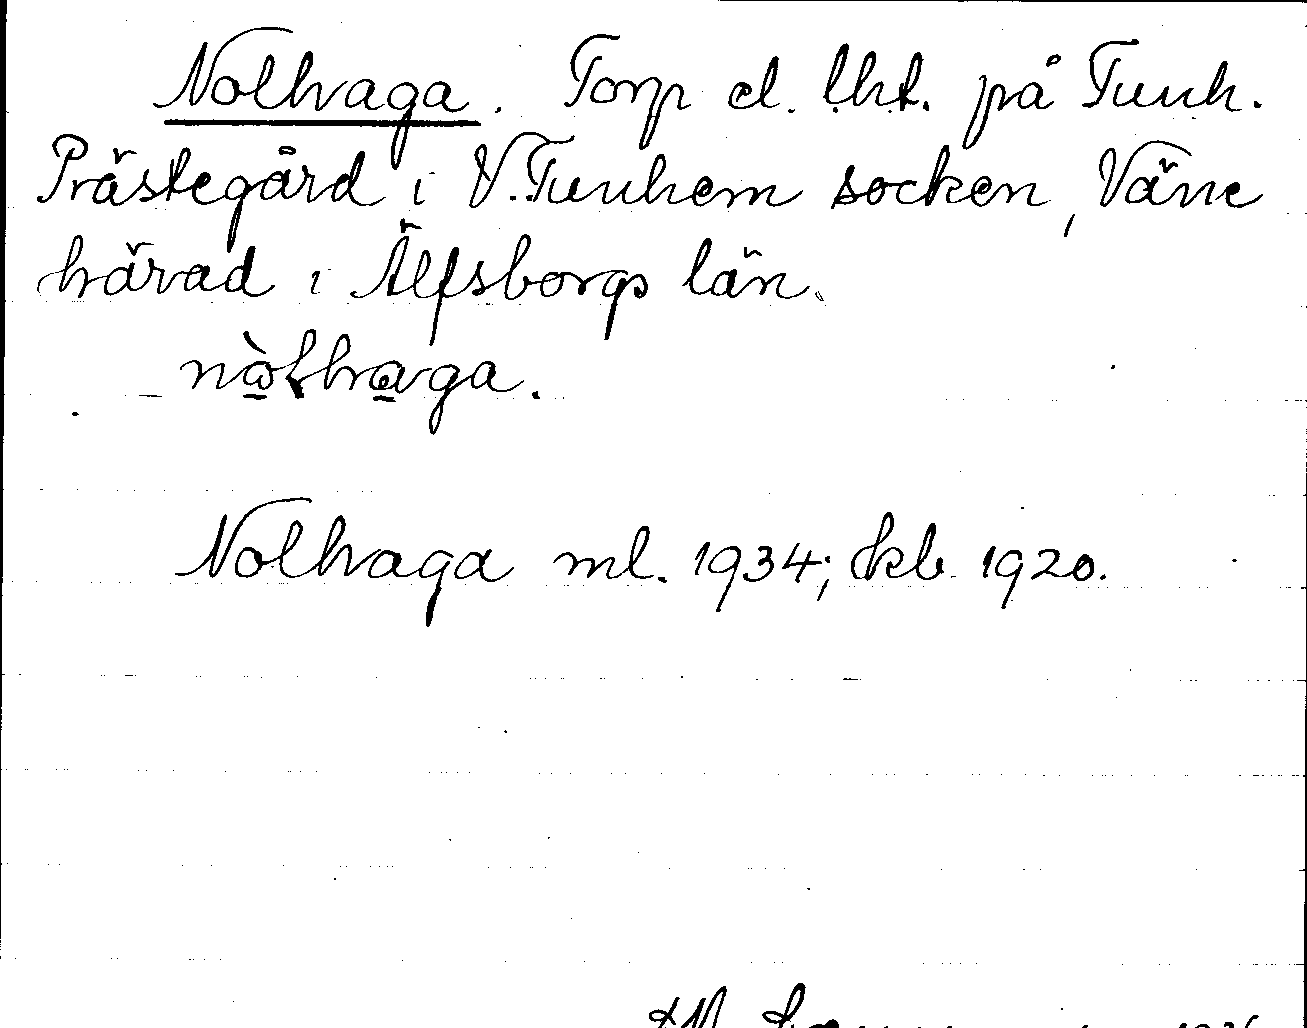 Nolhaga. Torp el. lht. på Tunh.
Prästegård i V. Tunhem socken, Väne
härad i Älfsborgs län.
nòlhaga.
Nolhaga ml. 1934; dkb 1920.